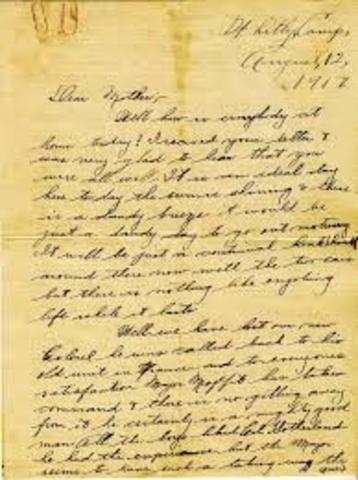 Camp,
August, 12,
1917
Dear Mother,
Well how is everybody at
home today? I received your letter &
was very glad to hear that you
were all well. It is an ideal day
here to day the sun is shining & there
is a dandy breeze it would be
just a dandy day to go out motoring
It will be just a continual
around there now with the two cars
but there is nothing like enjoying
life while it lasts
Well we have lost our new
Colonel he was called back to his
old unit in France and to everyones
satisfaction Major Moffit has taken
command & there is no getting away
from it he certainly is a mighty good
man. All the boys liked Col. Sutherland
he had the experience but the Major
seems to have such a taking way the